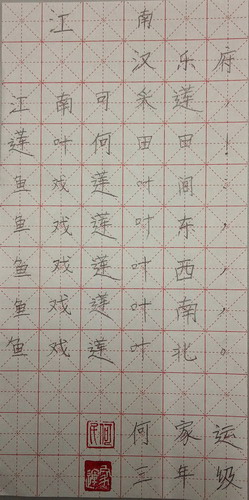 江南
汉乐府
江南可采莲，
莲叶何田田！
鱼戏莲叶间：
鱼戏莲叶东，
鱼戏莲叶西，
鱼戏莲叶南，
鱼戏莲叶北。
何家运
三年级